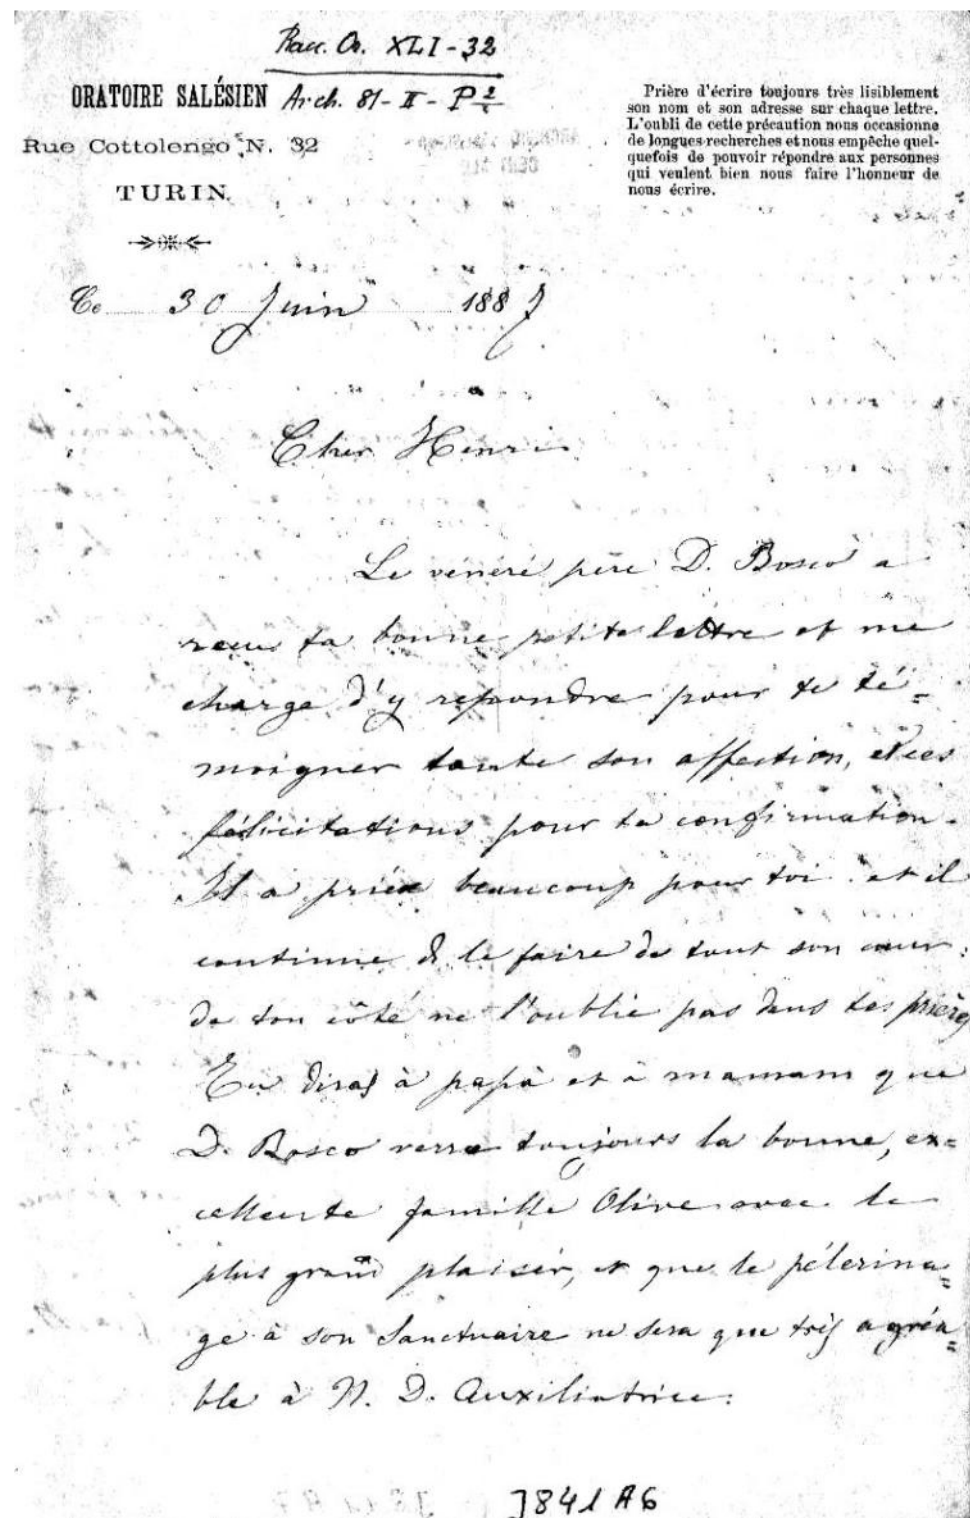 Racc. Or. XLI-32
ORATOIRE SALÉSIEN Arch. 81-II-P
Rue Cottolengo N. 32
TURIN
Prière d'écrire toujours très lisiblement
son nom et son adresse sur chaque lettre.
L'oubli de cette précaution nous occasionne
de longues recherches et nous empêche quel-
quefois de pouvoir répondre aux personnes
qui veulent bien nous faire l'honneur de
nous écrire.
Ce 30 Juin 1887
Cher Henri
Le vénéré père D. Bosco a
recu ta bonne petite lettre et me
charge d'y repondre pour te té=
moigner toute son affection, et ces
félicitations pour ta confirmation.
Il a priéa beaucoup pour toi et il
continue à le faire de tout son cœur:
de ton côté ne l'oublie pas dans tes prières
Tu diras à papà et à maman que
D. Bosco verra toujours la bonne, ex=
cellente famille Olive avec le
plus grand plaisir, et que le pélerina=
ge à son Sanctuaire ne sera que très agréa=
ble à N. D. Auxiliatrice.
3841 A6